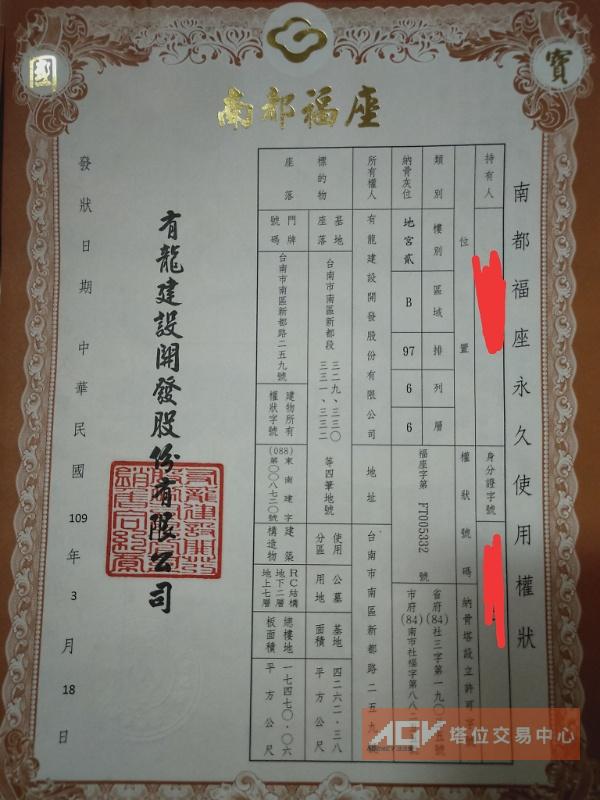 國
寶
南都福座
南都福座永久使用權狀
持有人
身分證字號
位置
權狀號碼
納骨塔設立許可
類別
樓別
區域
排
列
層
福座字第 FT005332 號
省府(84)社三字第一九
市府(84)南市社福字第八八二
納骨灰位
地宮貳
B
97
6
6
所有權人
有龍建設開發股份有限公司
地址
台南市南區新都路二五九
標的物
座落
基地座落
台南市南區新都段
三二九、三三〇
三三一、三三二
等四筆地號
使用分區
公墓用地
基地面積
四二六二.三八
平方公尺
門牌號碼
台南市南區新都路二五九號
建物所有權狀字號
(088)東南建字
第〇〇八七二〇號
建築構造物
RC結構
地下二層
地上七層
總樓地板面積
一七四七〇.〇六
平方公尺
有龍建設開發股份有限公司
發狀日期 中華民國109年3月18日
AGV 塔位交易中心